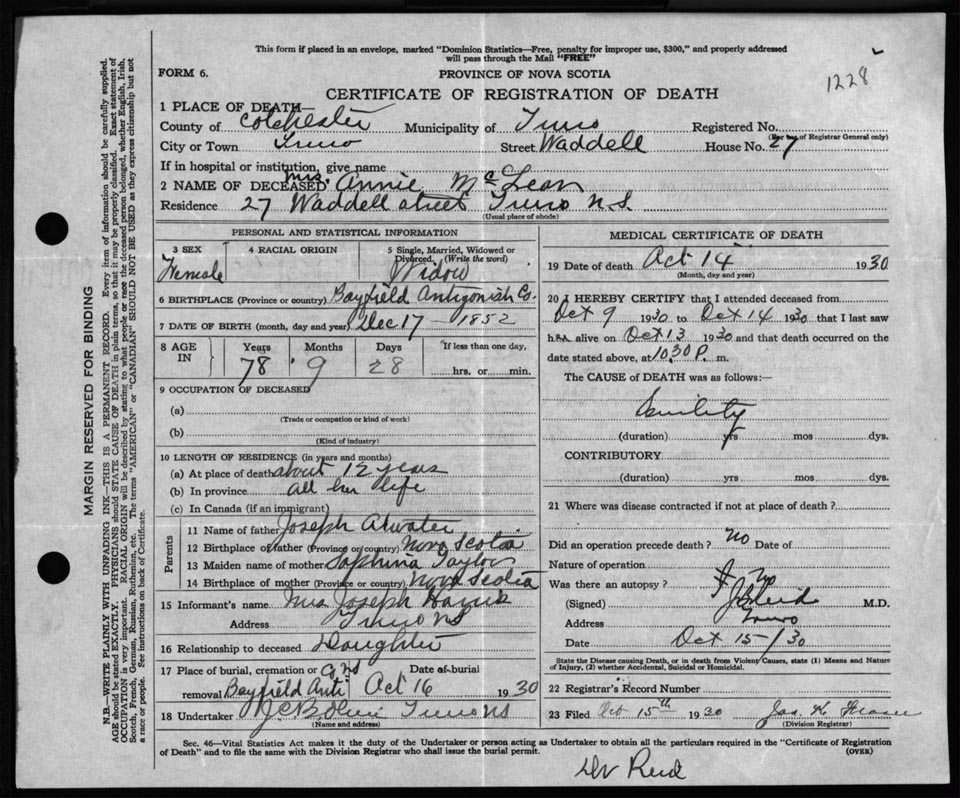 This form if placed in an envelope, marked "Dominion Statistics—Free, penalty for improper use, $300," and properly addressed
will pass through the Mail "FREE"
FORM 6. PROVINCE OF NOVA SCOTIA
1228
CERTIFICATE OF REGISTRATION OF DEATH
1 PLACE OF DEATH—
County of Colchester Municipality of Truro Registered No.
(For use of Registrar General only)
City or Town Truro Street Waddell House No. 27
If in hospital or institution, give name
2 NAME OF DECEASED Mrs. Annie McLean
Residence 27 Waddell Street Truro N.S.
(Usual place of abode)
PERSONAL AND STATISTICAL INFORMATION
3 SEX 4 RACIAL ORIGIN 5 Single, Married, Widowed or
Divorced. (Write the word)
Female Widow
6 BIRTHPLACE (Province or country) Bayfield Antigonish Co.
7 DATE OF BIRTH (month, day and year) Dec 17 — 1852
8 AGE IN Years Months Days If less than one day,
78 9 28 hrs. or min.
9 OCCUPATION OF DECEASED
(a)
(Trade or occupation or kind of work)
(b)
(Kind of industry)
10 LENGTH OF RESIDENCE (in years and months)
(a) At place of death about 12 years
(b) In province all her life
(c) In Canada (if an immigrant)
Parents
11 Name of father Joseph Atwater
12 Birthplace of father (Province or country) Nova Scotia
13 Maiden name of mother Sophina Taylor
14 Birthplace of mother (Province or country) Nova Scotia
15 Informant's name Mrs Joseph
Address Truro NS
16 Relationship to deceased Daughter
17 Place of burial, cremation or Date of burial
removal Bayfield Anti Oct 16 1930
18 Undertaker Truro NS
(Name and address)
MEDICAL CERTIFICATE OF DEATH
19 Date of death Oct 14 1930
(Month, day and year)
20 I HEREBY CERTIFY that I attended deceased from
Oct 9 1930 to Oct 14 1930 that I last saw
h.er. alive on Oct 13 1930 and that death occurred on the
date stated above, at 10.30 P. m.
The CAUSE of DEATH was as follows:—
Senility
(duration) yrs mos dys.
CONTRIBUTORY
(duration) yrs mos dys.
21 Where was disease contracted if not at place of death?
Did an operation precede death? No Date of
Nature of operation
Was there an autopsy? No
(Signed) Reid M.D.
Address Truro
Date Oct 15/30
State the Disease causing Death, or in death from Violent Causes, state (1) Means and Nature
of Injury, (2) whether Accidental, Suicidal or Homicidal.
22 Registrar's Record Number
23 Filed Oct 15th 1930 Jas. K. Fraser
(Division Registrar)
Sec. 46—Vital Statistics Act makes it the duty of the Undertaker or person acting as Undertaker to obtain all the particulars required in the "Certificate of Registration
of Death" and to file the same with the Division Registrar who shall issue the burial permit. (OVER)
Dr Reid
MARGIN RESERVED FOR BINDING
N.B.—WRITE PLAINLY WITH UNFADING INK—THIS IS A PERMANENT RECORD. Every item of information should be carefully supplied.
AGE should be stated EXACTLY. PHYSICIANS should STATE CAUSE OF DEATH in plain terms, so that it may be properly classified. Exact statement of
OCCUPATION is very important. RACIAL ORIGIN will be described by stating to what people or race the deceased person belonged, whether English, Irish,
Scotch, French, German, Russian, Ruthenian, etc. The terms "AMERICAN" or "CANADIAN" SHOULD NOT BE USED as they express citizenship but not
a race or people. See instructions on back of Certificate.